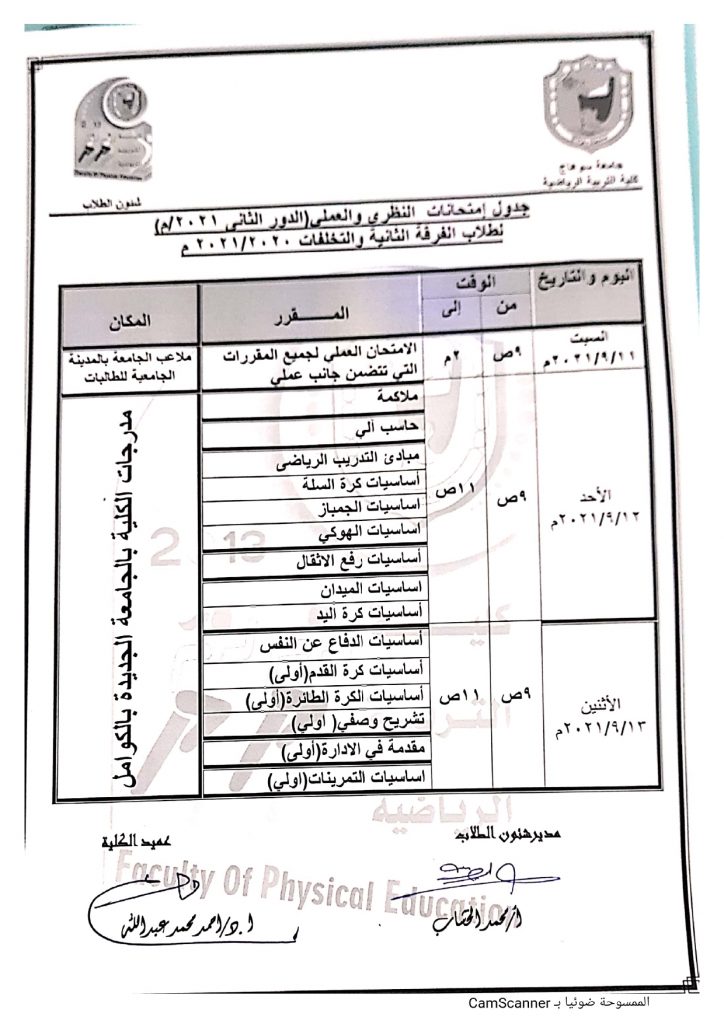 جامعة سوهاج
كلية التربية الرياضية
2013
Faculty Of Physical Education
شئون الطلاب
جدول إمتحانات النظري والعملي(الدور الثاني ٢٠٢١/م)
لطلاب الفرقة الثانية والتخلفات ٢٠٢١/٢٠٢٠ م
اليوم والتاريخ
الوقت
من
إلى
المـــــقرر
المكان
السبت
٢٠٢١/٩/١١م
٩ص
٢م
الامتحان العملي لجميع المقررات
التي تتضمن جانب عملي
ملاعب الجامعة بالمدينة
الجامعية للطالبات
الأحد
٢٠٢١/٩/١٢م
٩ص
١١ص
ملاكمة
حاسب آلي
مبادئ التدريب الرياضى
أساسيات كرة السلة
اساسيات الجمباز
اساسيات الهوكي
أساسيات رفع الاثقال
اساسيات الميدان
أساسيات كرة اليد
مدرجات الكلية بالجامعة الجديدة بالكوامل
الأثنين
٢٠٢١/٩/١٣م
٩ص
١١ص
أساسيات الدفاع عن النفس
أساسيات كرة القدم(أولى)
أساسيات الكرة الطائرة(أولى)
تشريح وصفي( اولي)
مقدمة في الادارة(أولى)
اساسيات التمرينات(اولي)
2013
الرياضية
Faculty Of Physical Education
مدير شئون الطلاب
عميد الكلية
أ/محمد الخشاب
ا.د/احمد محمد عبدالله
الممسوحة ضوئيا بـ CamScanner